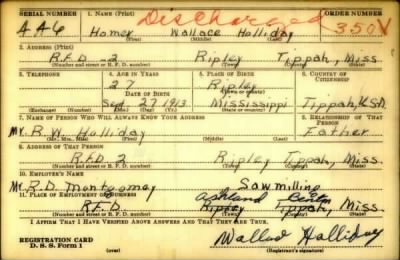 SERIAL NUMBER 1. NAME (Print) Discharged ORDER NUMBER
AA6 Homer Wallace Holliday 350V
(First) (Middle) (Last)
2. ADDRESS (Print)
R.F.D-2 Ripley Tippah, Miss.
(Number and street or R. F. D. number) (Town) (County) (State)
3. TELEPHONE 4. AGE IN YEARS 5. PLACE OF BIRTH 6. COUNTRY OF CITIZENSHIP
27 Ripley
DATE OF BIRTH (Town or county)
Sep. 27 1913 Mississippi Tippah, U.S.A
(Exchange) (Number) (Mo.) (Day) (Yr.) (State or country)
7. NAME OF PERSON WHO WILL ALWAYS KNOW YOUR ADDRESS 8. RELATIONSHIP OF THAT PERSON
Mr. R. W. Holliday Father
(Mr., Mrs., Miss) (First) (Middle) (Last)
9. ADDRESS OF THAT PERSON
R.F.D. 2 Ripley Tippah, Miss.
(Number and street or R. F. D. number) (Town) (County) (State)
10. EMPLOYER'S NAME
Mr. R.D. Montgomey Sawmilling
11. PLACE OF EMPLOYMENT OR BUSINESS Ashland Benton
R.F.D. Ripley Tippah, Miss.
(Number and street or R. F. D. number) (Town) (County) (State)
I AFFIRM THAT I HAVE VERIFIED ABOVE ANSWERS AND THAT THEY ARE TRUE.
REGISTRATION CARD
D. S. S. Form 1 (over) Wallace Holliday
(Registrant's signature)